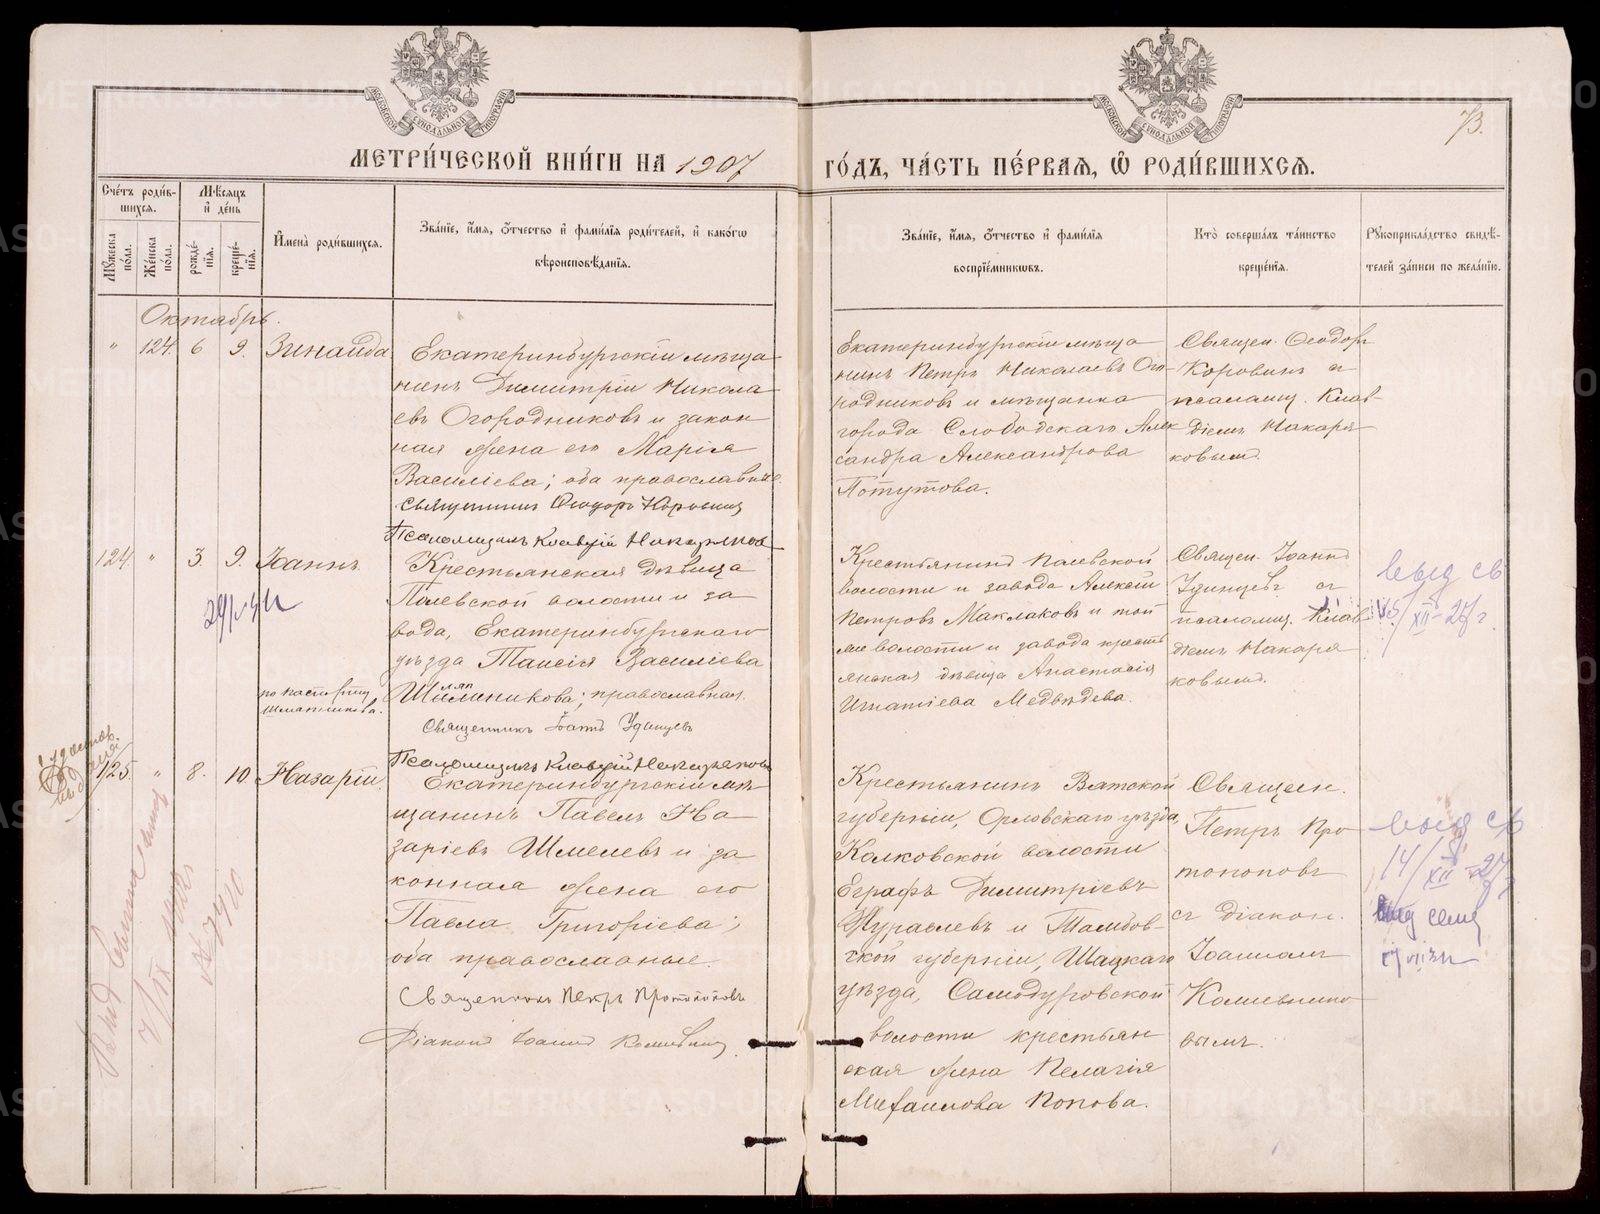 МОСКОВСКОЙ СУНОДАЛЬНОЙ ТИПОГРАФІИ
МОСКОВСКОЙ СУНОДАЛЬНОЙ ТИПОГРАФІИ
73.
МЕТРИ́ЧЕСКОЙ КНИ́ГИ НА 1907
ГО́ДЪ, ЧА́СТЬ ПЕ́РВАѦ, Ѡ РОДИ́ВШИХСѦ.
Сче́тъ роди́в-
шихсѧ.
Мꙋ́жеска по́ла.
Же́нска по́ла.
Мѣ́сѧцъ
и҆ де́нь
рожде́-
нїѧ.
креще́-
нїѧ.
И҆мена̀ роди́вшихсѧ.
Зва́нїе, и҆́мѧ, ѻ҆́тчество и҆ фами́лїѧ роди́телей, и҆ како́гѡ
вѣроисповѣ́данїѧ.
Зва́нїе, и҆́мѧ, ѻ҆́тчество и҆ фами́лїѧ
воспрїе́мникѡвъ.
Кто̀ соверша́лъ та́инство
креще́нїѧ.
Рꙋкоприкла́дство свидѣ́-
телей за́писи по жела́нїю.
Октябрь.
" 124. 6 9. Зинаида.
Екатеринбургскій мѣща
нинъ Димитрій Никола
евъ Огородниковъ и закон
ная жена его Марія
Василіева; оба православные.
Священникъ Ѳеодоръ Коровинъ
Псаломщикъ Клавдій Накаряковъ
Екатеринбургскій мѣща
нинъ Петръ Николаевъ Ого-
родниковъ и мѣщанка
города Слободскаго Алек
сандра Александрова
Потутова.
Священ. Ѳеодоръ
Коровинъ и
псаломщ. Клав-
діемъ Накаря
ковым.
124. " 3. 9. Іоаннъ.
Крестьянская дѣвица
Полевской волости и за
вода, Екатеринбургскаго
уѣзда Таисія Василіева
Шиляпникова; православная.
Священникъ Іоаннъ Удинцевъ
Псаломщикъ Клавдій Накаряковъ
Шляпникова.
Крестьянинъ Полевской
волости и завода Алексій
Петровъ Маклаковъ и той
же волости и завода кресть
янская дѣвица Анастасія
Игнатіева Медвѣдева.
Священ. Іоаннъ
Удинцевъ съ
псаломщ. Клав
діемъ Накаря
ковым.
выд св
15/XII-27 г.
125. " 8. 10. Назарій.
Екатеринбургскій мѣ
щанинъ Павелъ На
заріевъ Шмелевъ и за
конная жена его
Павла Григоріева;
оба православные.
Священникъ Петръ Протопоповъ
Діаконъ Іоаннъ
Крестьянинъ Вятской
губерніи, Орловскаго уѣзда,
Колковской волости
Еграфъ Димитріевъ
Журавлевъ и Тамбов-
ской губерніи, Шацкаго
уѣзда, Самодуровской
волости крестьян
ская жена Пелагія
Михаилова Попова.
Священ.
Петръ Про
топоповъ
съ діакон.
Іоанномъ
вымъ.
выд св
14/XII-27 г